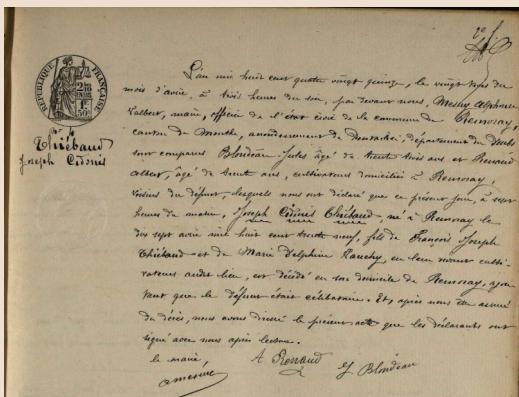 2e f.
RÉPUBLIQUE FRANÇAISE
Thiébaud
Joseph Cidonis
L'an mil huit cent quatre vingt quinze, le vingt du
mois d'avril, à trois heures du soir, par devant nous, Mesny Alphonse
maire, officier de l'état civil de la commune de Remoray,
canton de Mouthe, arrondissement de Pontarlier, département du Doubs
sont comparus Blondeau Jules âgé de trente trois ans et Renaud
Albert, âgé de trente ans, cultivateurs domiciliés à Remoray,
voisins du défunt, lesquels nous ont déclaré que ce présent jour, à sept
heures du matin, Joseph Cidonis Thiébaud, né à Remoray le
dix sept avril mil huit cent trente neuf, fils de François Joseph
Thiébaud et de Marie Delphine en leur vivant culti-
vateurs audit lieu, est décédé en son domicile de Remoray, ajou
tant que le défunt était célibataire. Et, après nous être assuré
du décès, nous avons dressé le présent acte que les déclarants ont
signé avec nous après lecture.
le maire,
A Renaud
J. Blondeau
amesny